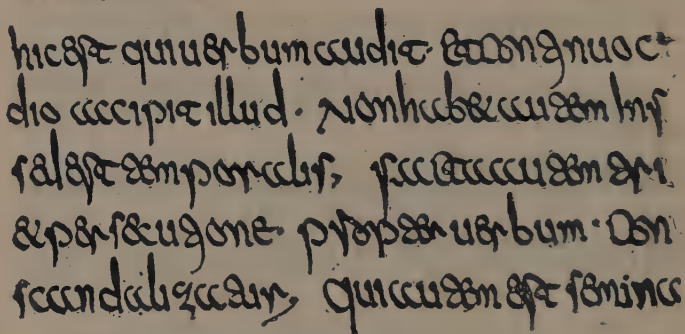 hic est qui uerbum audit· Et continuo c
dio accipit illud · Non habet autem In s
sed est temporalis, facta autem tri
et persecutione· propter uerbum· Con
scandalizatur, Qui autem est semina